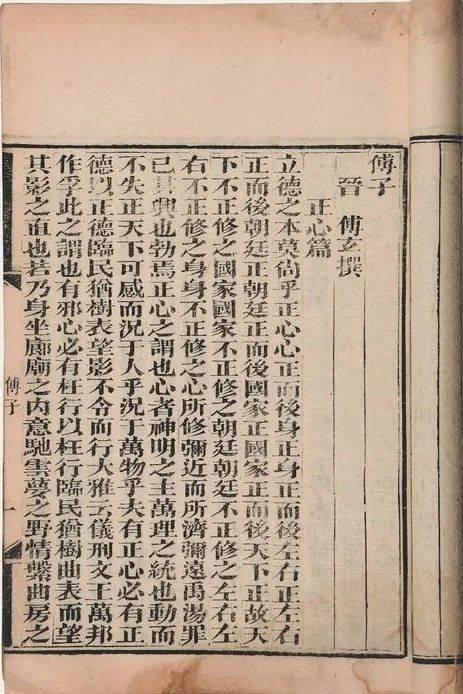 傅子
晉 傅玄撰
正心篇
立德之本莫尙乎正心心正而後身正身正而後左右正左右
正而後朝廷正朝廷正而後國家正國家正而後天下正故天
下不正修之國家國家不正修之朝廷朝廷不正修之左右左
右不正修之身身不正修之心所修彌近而所濟彌遠禹湯罪
己其興也勃焉正心之謂也心者神明之主萬理之統也動而
不失正天下可感而況于人乎況于萬物乎夫有正心必有正
德以正德臨民猶樹表望影不令而行大雅云儀刑文王萬邦
作孚此之謂也有邪心必有枉行以枉行臨民猶樹曲表而望
其影之直也若乃身坐廊廟之內意馳雲夢之野情繫曲房之
傅子
一